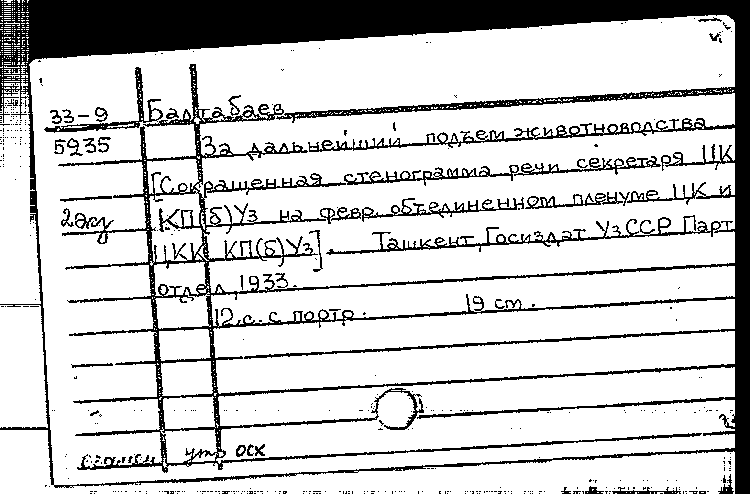 33-9 Балтабаев,
5935 За дальнейший подъем животноводства
[Сокращенная стенограмма речи секретаря ЦК
2экз КП(б)Уз на февр. объединенном пленуме ЦК и
ЦКК КП(б)Уз]. Ташкент, Госиздат УзССР Парт
отдел, 1933.
12.с. с портр. 19 cm.
утр оск